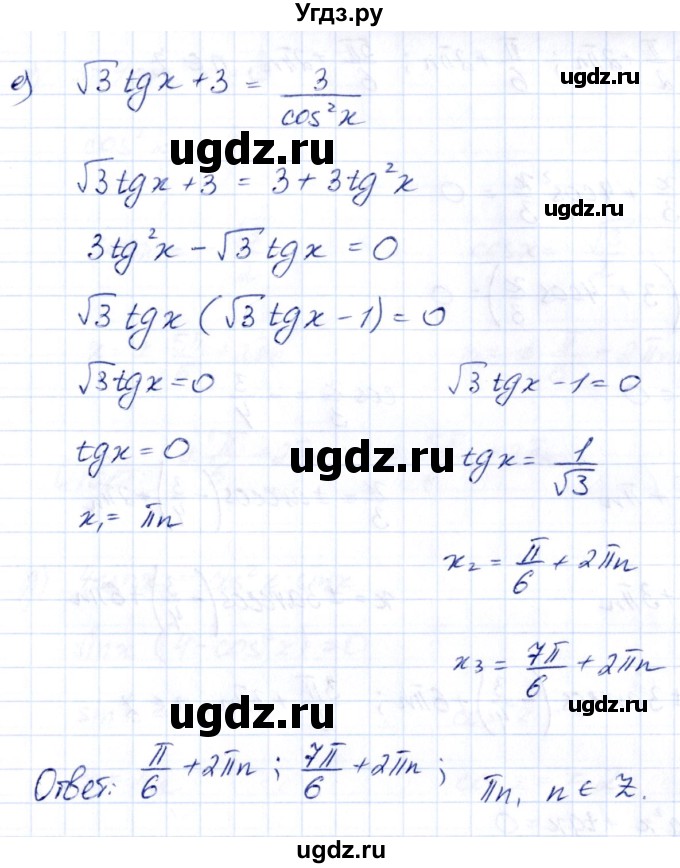 Угдз.ру
е) √3 tgx + 3 = 3/cos²x
ugdz.ru
ugdz.ru
√3tgx + 3 = 3 + 3tg²x
ugdz.ru
3tg²x - √3 tgx = 0
√3 tgx (√3 tgx - 1) = 0
ugdz.ru
√3tgx = 0 √3 tgx - 1 = 0
tgx = 0 tgx = 1/√3
ugdz.ru
ugdz.ru
x₁ = πn
x₂ = π/6 + 2πn
x₃ = 7π/6 + 2πn
ugdz.ru
ugdz.ru
Ответ: π/6 + 2πn ; 7π/6 + 2πn ; πn, n ∈ Z.
ugdz.ru